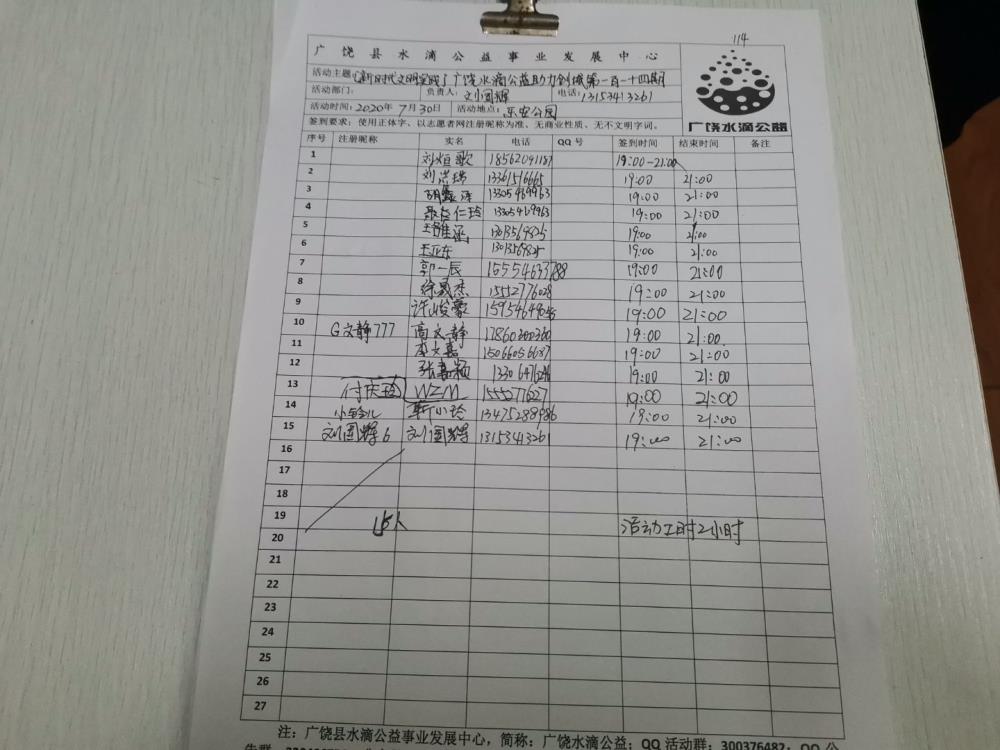 114
广饶县水滴公益事业发展中心
广饶水滴公益
活动主题 广饶水滴公益助力创城第一百一十四期
活动部门： 负责人：刘国辉 电话：13153413261
活动时间：2020年7月30日 活动地点：乐安公园
签到要求：使用正体字、以志愿者网注册昵称为准、无商业性质、无不文明字词。
序号 注册昵称 实名 电话 QQ号 签到时间 结束时间 备注
1 刘烜歌 18562091187 19:00-21:00
2 刘洪瑞 13361516665 19:00 21:00
3 13305469963 19:00 21:00
4 13305469963 19:00 21:00
5 王雅涵 19:00 21:00
6 王亚东 19:00 21:00
7 郭一辰 15554633788 19:00 21:00
8 徐晟杰 15552776028 19:00 21:00
9 许峻豪 19:00 21:00
10 G文静777 高文静 17860300360 19:00 21:00
11 李文嘉 15066056687 19:00 21:00
12 张嘉颖 19:00 21:00
13 付庆玲 WZM 19:00 21:00
14 小铃儿 靳小玲 13475288986 19:00 21:00
15 刘国辉6 刘国辉 13153413261 19:00 21:00
16
17
18
19 15人 活动工时2小时
20
21
22
23
24
25
26
27
注：广饶县水滴公益事业发展中心，简称：广饶水滴公益；QQ活动群：300376487；QQ公